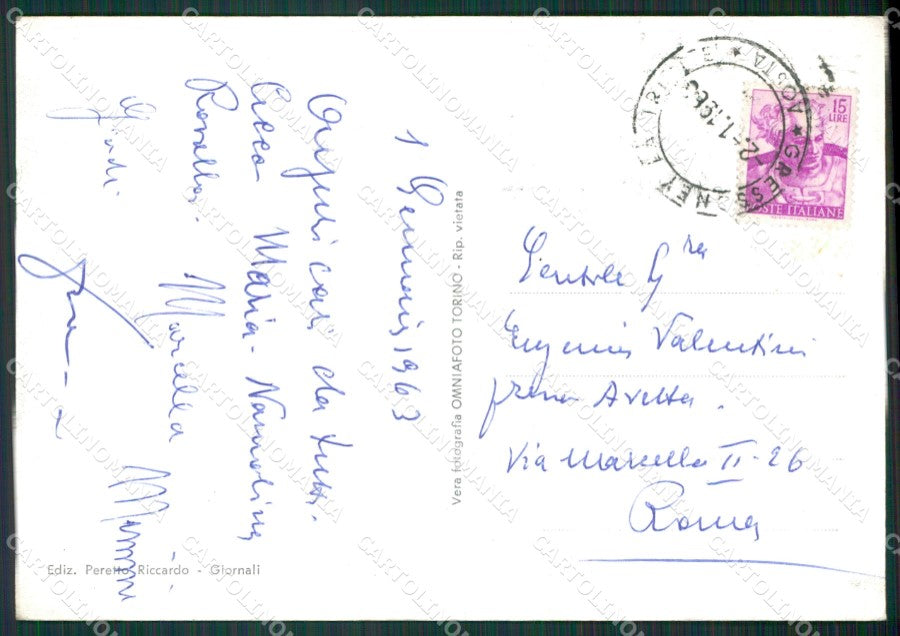 1 Gennaio 1963
Auguri cari da tutti.
Cicca Maria - Nannolina
Rosalba. Marcella Mimmi
Vera fotografia OMNIAFOTO TORINO - Rip. vietata
Ediz. Peretto Riccardo - Giornali
15
LIRE
POSTE ITALIANE
GRESSONEY LA TRINITE * AOSTA *
-2-1.1963
Gentile G.ra
Eugenia Valentini
presso Avetta.
Via Marcello II - 26
Roma
CARTOLINOMANIA